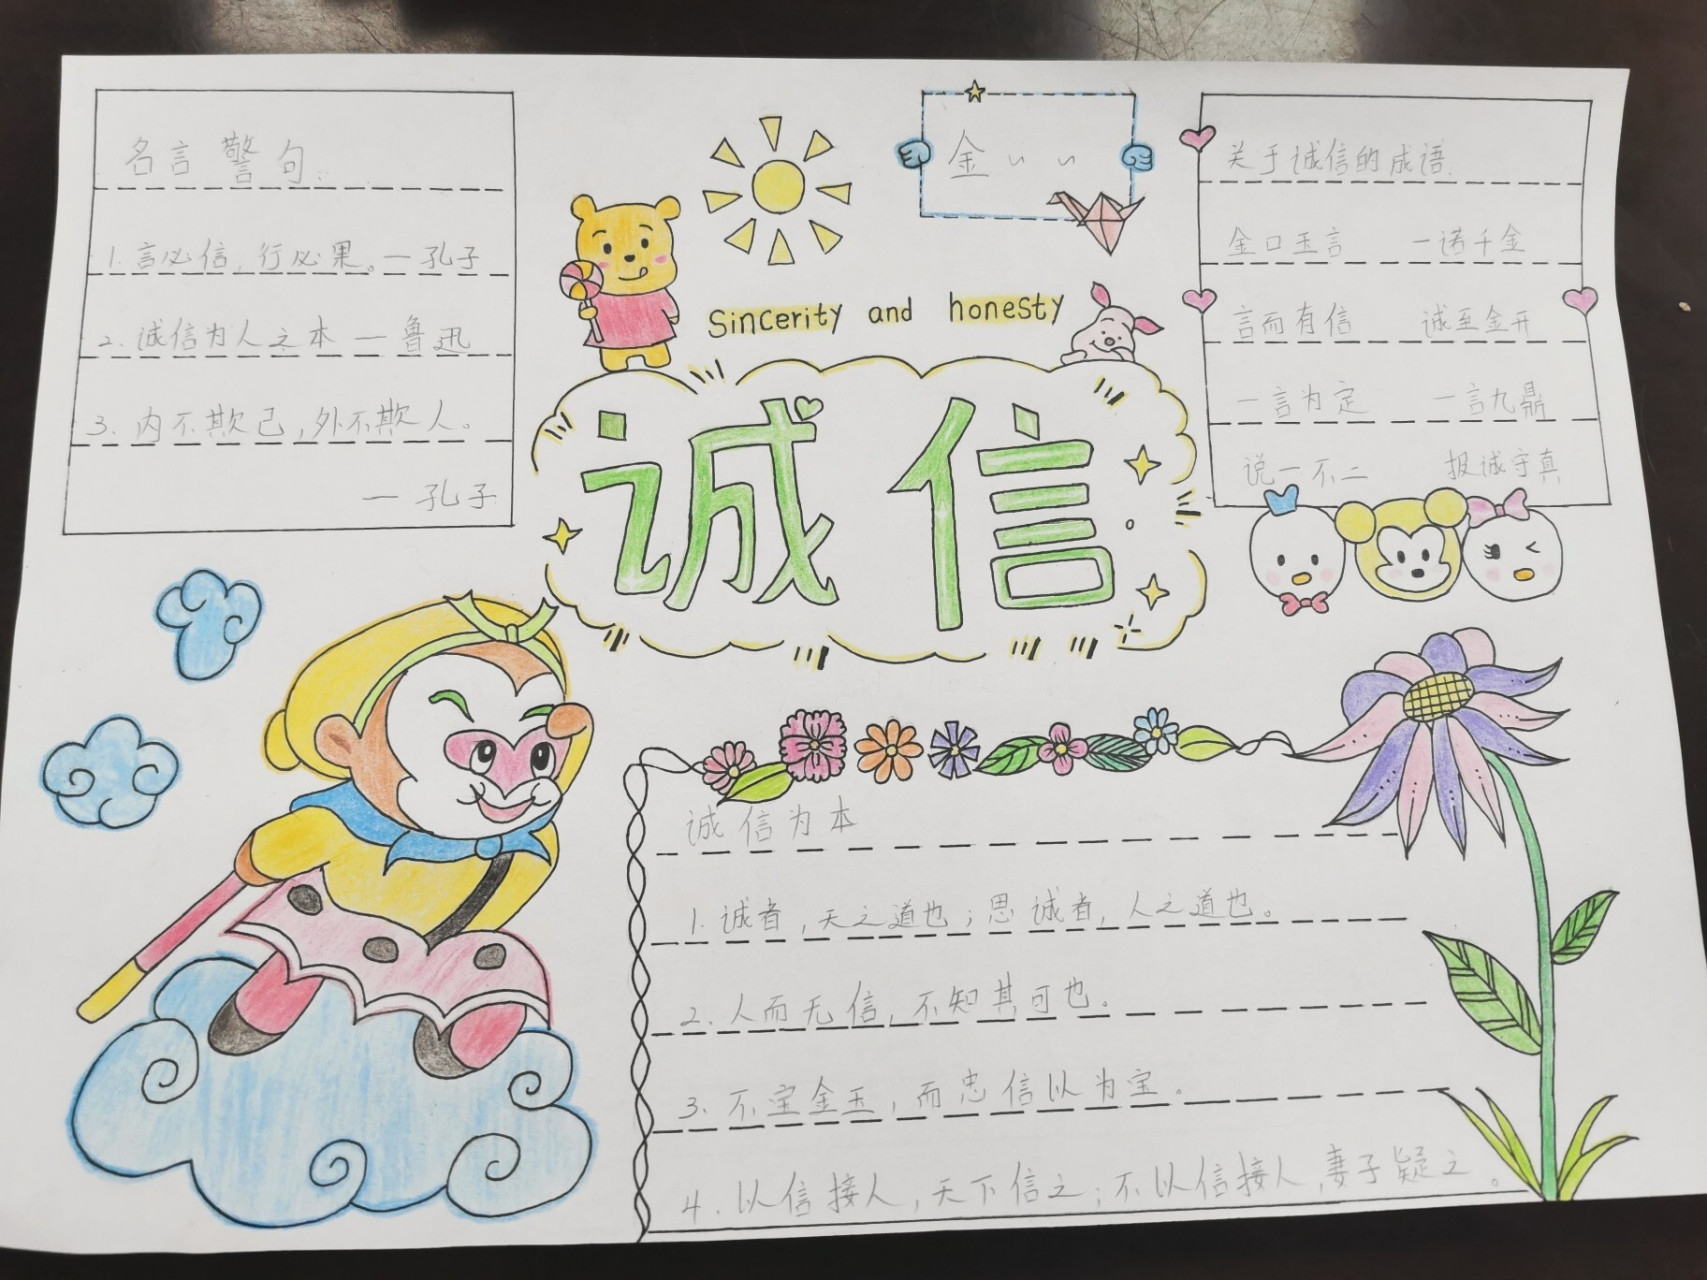 名言警句:
1.言必信,行必果。—孔子
2.诚信为人之本 — 鲁迅
3.内不欺己,外不欺人。
— 孔子
金
Sincerity and honesty
诚信
关于诚信的成语.
金口玉言 一诺千金
言而有信 诚至金开
一言为定 一言九鼎
说一不二 报诚守真
诚信为本
1.诚者,天之道也;思诚者,人之道也。
2.人而无信,不知其可也。
3.不宝金玉,而忠信以为宝。
4.以信接人,天下信之;不以信接人,妻子疑之。